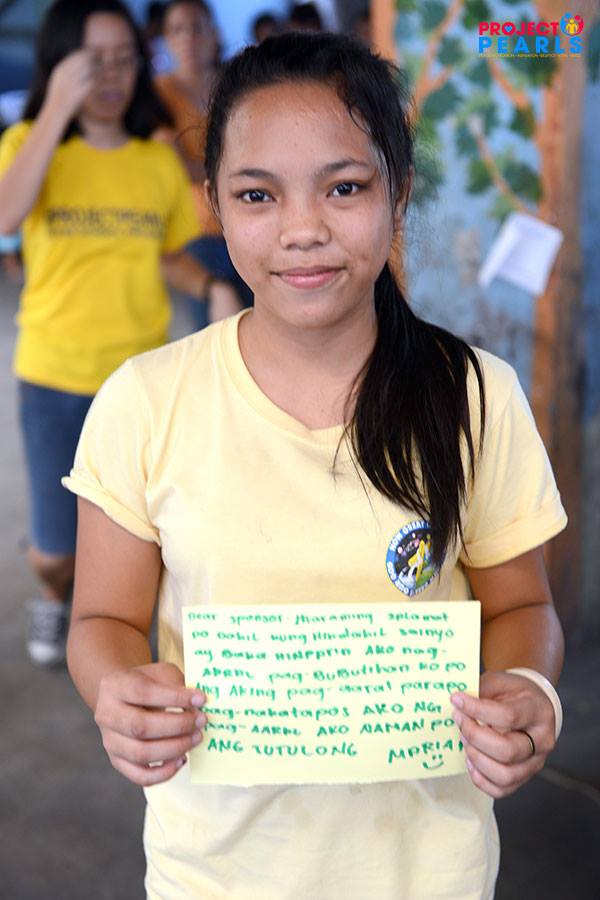 PROJECT
PEARLS
PROJECTPEARLS
HOW GREAT
Dear sponsor. Maraming salamat
po Dahil kung Hindahil sainyo
ay Baka HINDPRIN AKO nag-
AARAL pag-BuBuTihan ko po
Ang Aking pag-aaral parapo
pag-nakatapos AKO NG
pag-AARAL AKO NAMAN PO
ANG TUTULONG MARIA